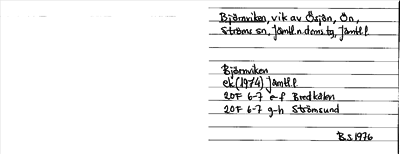 Björnviken, vik av Ösjön, Ön,
Ströms sn, Jämtl. n. doms tg, Jämtl. l.
Björnviken
ek (1974) Jämtl. l.
20F 6-7 e-f Bredkälen
20F 6-7 g-h Strömsund
B.S 1976